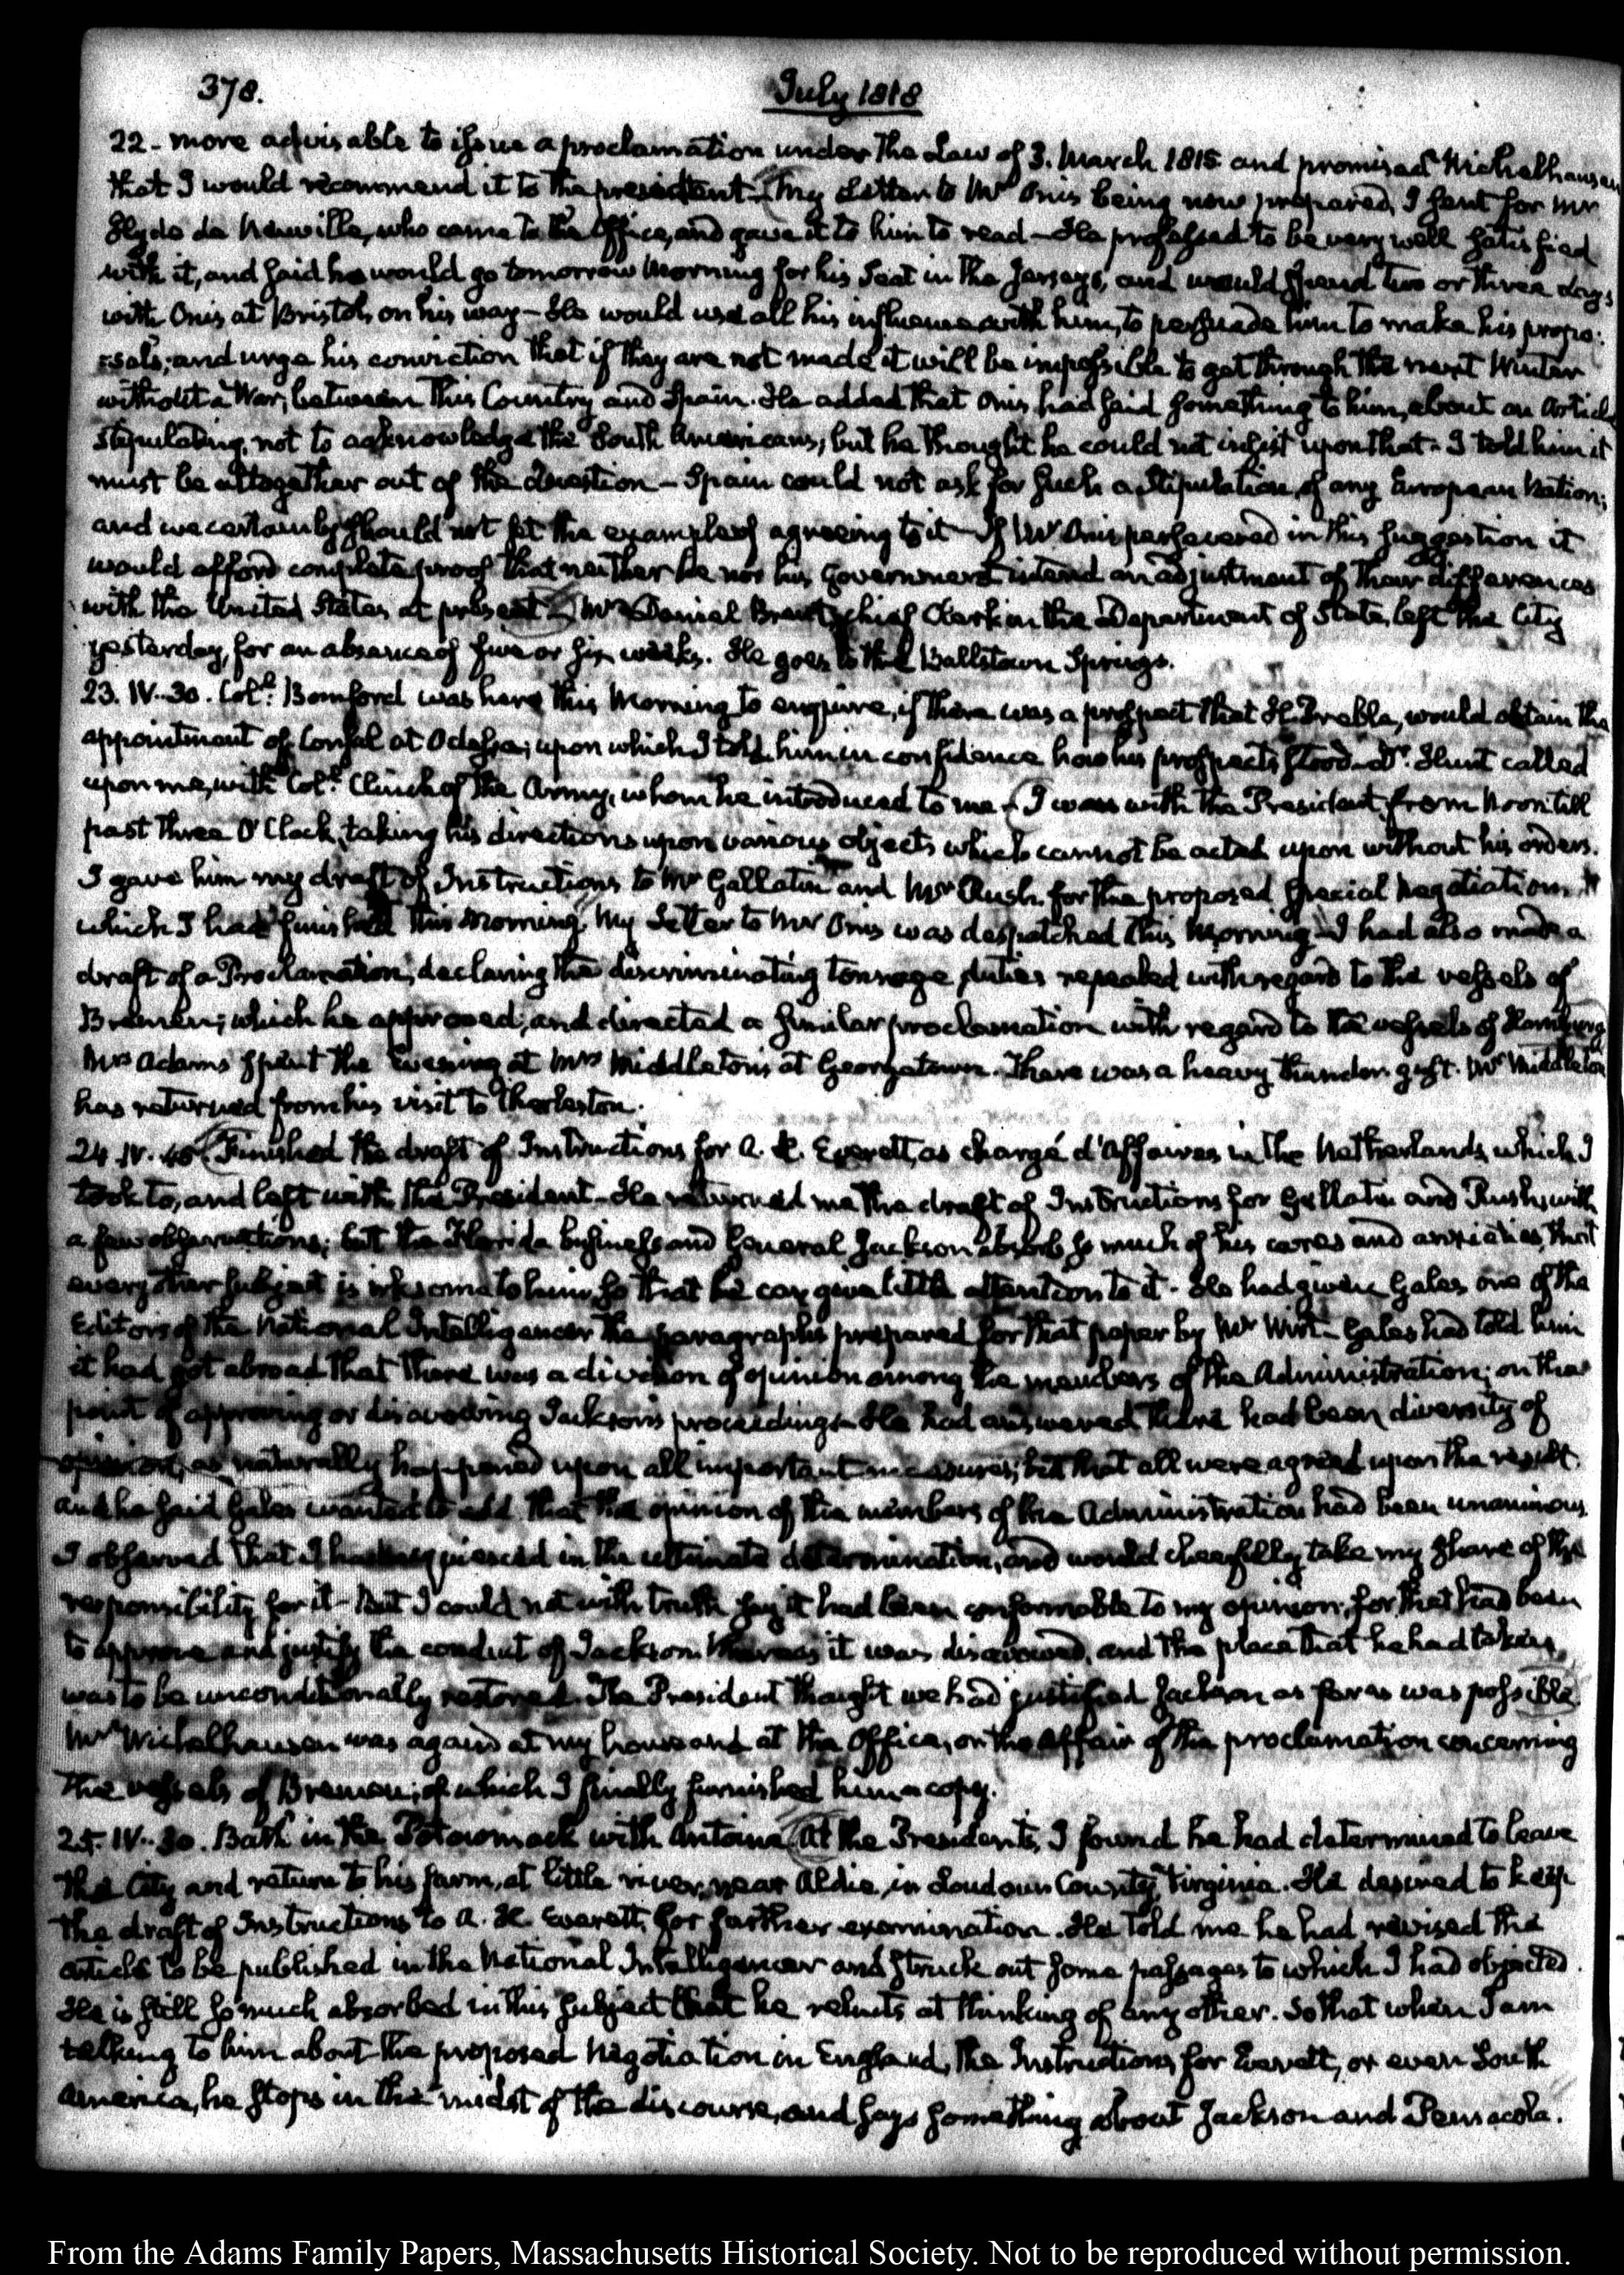 378.
July 1818
22 - more advisable to issue a proclamation under the Law of 3. March 1815 and promised Wichelhausen
that I would recommend it to the president - My Letter to Mr Onis being now prepared, I sent for Mr
Hyde de Neuville, who came to the Office, and gave it to him to read - He professed to be very well satisfied
with it, and said he would go tomorrow Morning for his Seat in the Jerseys, and would spend two or three days
with Onis at Bristol, on his way - He would use all his influence with him, to persuade him to make his propo:
:sals; and urge his conviction that if they are not made it will be impossible to get through the next Winter
without a War, between this Country and Spain. He added that Onis had said something to him, about an Article
stipulating, not to acknowledge the South Americans, but he thought he could not insist upon that - I told him it
must be altogether out of the question - Spain could not ask for such a stipulation of any European Nation;
and we certainly should not set the example of agreeing to it - If Mr Onis persevered in this suggestion it
would afford complete proof that neither he nor his Government intend an adjustment of their differences
with the United States at present - Mr Daniel Brent, chief Clerk in the Department of State, left the City
yesterday, for an absence of five or six weeks. He goes to the Ballstown Springs.
23. IV. 30. Coll. Bomford was here this Morning to enquire, if there was a prospect that H. Preble, would obtain the
appointment of Consul at Odessa; upon which I told him in confidence how his prospects stood - Dr. Hunt called
upon me, with Coll. Clinch of the Army, whom he introduced to me - I was with the President from Noon till
past three O'Clock, taking his directions upon various objects which cannot be acted upon without his orders.
I gave him my draft of Instructions to Mr Gallatin and Mr Rush for the proposed special Negotiation
which I had finished this Morning. My Letter to Mr Onis was despatched this Morning - I had also made a
draft of a Proclamation, declaring the discriminating tonnage duties repealed with regard to the vessels of
Bremen; which he approved; and directed a similar proclamation with regard to the vessels of Hamburg
Mrs Adams spent the Evening at Mrs Middleton's at Georgetown. There was a heavy thunder gust. Mr Middleton
has returned from his visit to Charleston.
24. IV. 45 Finished the draft of Instructions for A. H. Everett, as chargé d'Affaires in the Netherlands, which I
took to, and left with the President - He returned me the draft of Instructions for Gallatin and Rush, with
a few observations; but the Florida business and General Jackson absorb so much of his cares and anxieties, that
every other subject is irksome to him, so that he can give little attention to it - He had given Gales one of the
Editors of the National Intelligencer the paragraphs prepared for that paper by Mr Wirt - Gales had told him
it had got abroad that there was a division of opinion among the members of the Administration; on the
point of approving or disavowing Jackson's proceedings - He had answered there had been diversity of
opinion, as naturally happened upon all important measures; but that all were agreed upon the result.
and he said Gales wanted to add that the opinion of the members of the Administration had been unanimous
I observed that I had acquiesced in the ultimate determination, and would cheerfully take my share of the
responsibility for it - But I could not with truth say it had been conformable to my opinion; for that had been
to approve and justify the conduct of Jackson. Whereas it was disavowed, and the place that he had taken,
was to be unconditionally restored. The President thought we had justified Jackson as far as was possible.
Mr Wichelhausen was again at my house and at the Office, on the affair of the proclamation concerning
the vessels of Bremen; of which I finally furnished him a copy.
25. IV. 30. Bath in the Potowmack with Antoine. At the President's, I found he had determined to leave
the City and return to his farm, at little river, near Aldie, in Loudoun County, Virginia. He desired to keep
the draft of Instructions to A. H. Everett, for further examination. He told me he had revised the
article to be published in the National Intelligencer and struck out some passages to which I had objected.
He is still so much absorbed in this subject that he relucts at thinking of any other. So that when I am
talking to him about the proposed Negotiation in England, the Instructions for Everett, or even South
America, he stops in the midst of the discourse, and says something about Jackson and Pensacola.
From the Adams Family Papers, Massachusetts Historical Society. Not to be reproduced without permission.